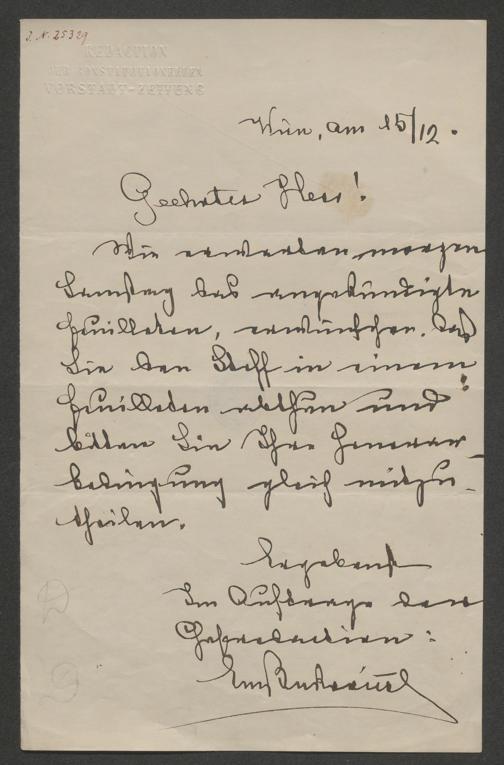 J. N. 25329
REDACTION
DER CONSTITUTIONELLEN
VORSTADT-ZEITUNG
Wien, am 15/12.
Geehrter Herr!
Wir erwarten morgen
Samstag das angekündigte
Feuilleton, erwünschen, daß
Sie den Stoff in einem
Feuilleton abthun und
bitten Sie Ihre Honorar-
bedingung gleich mitzu-
theilen.
Ergebenst
Im Auftrage der
Chefredaction: